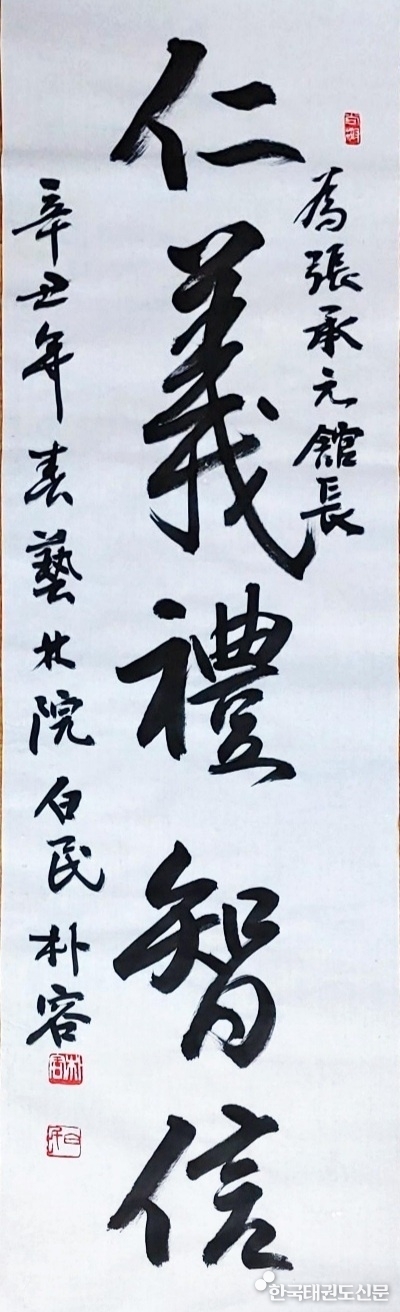 爲張承元館長
仁義禮智信
辛丑年春藝林院白民朴容
한국태권도신문